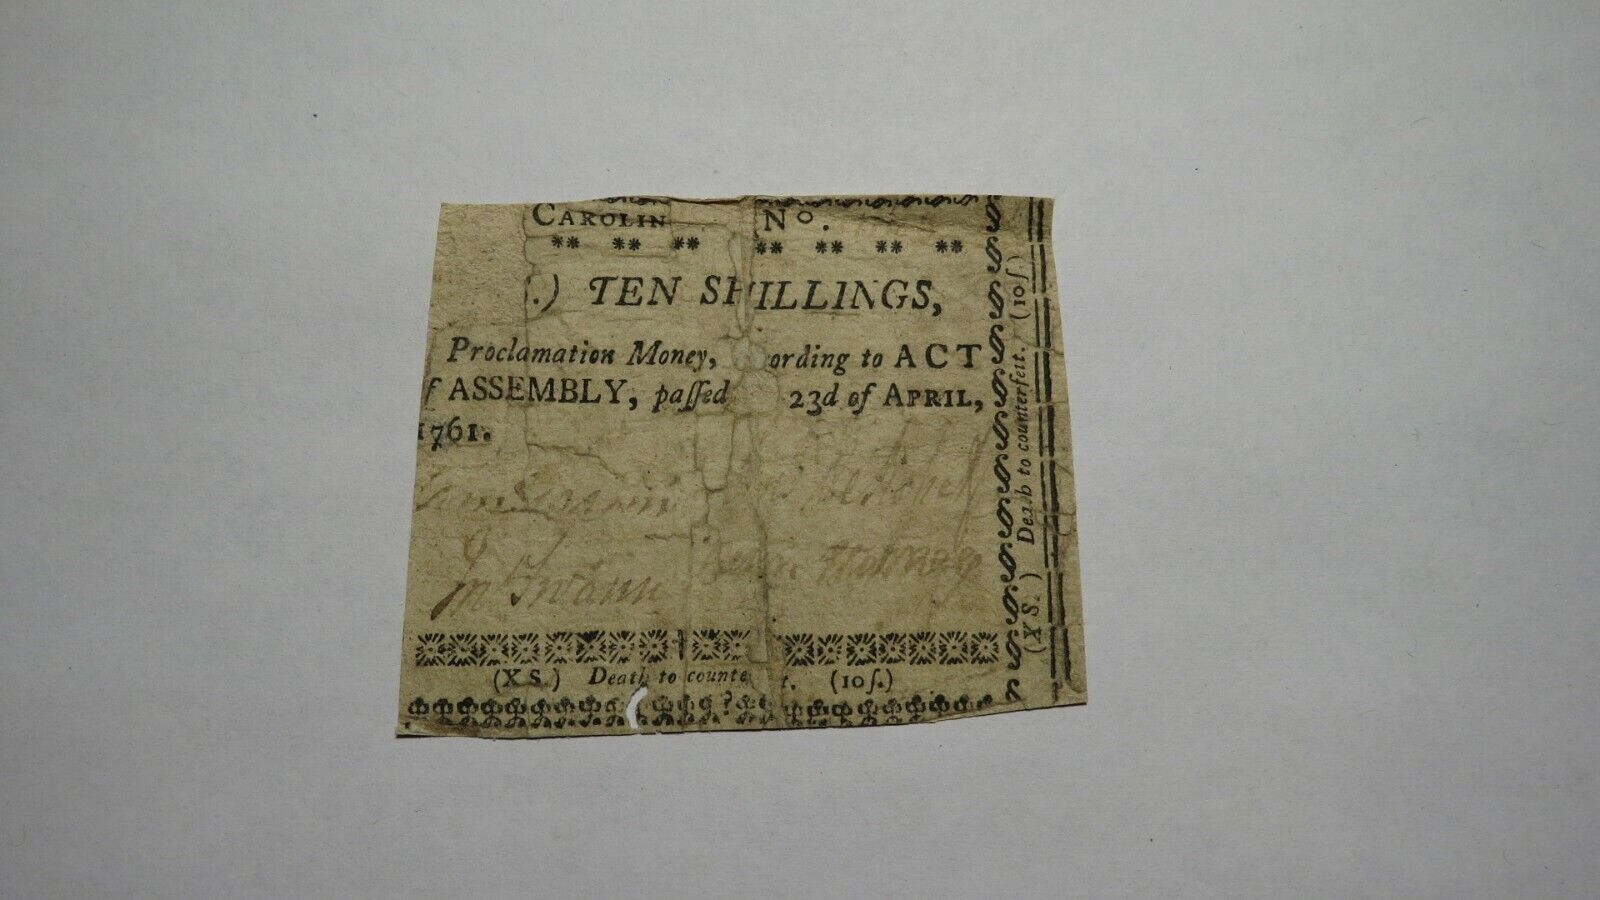 CAROLIN No.
** ** ** ** ** ** **
.) TEN SHILLINGS,
Proclamation Money, ording to ACT
f ASSEMBLY, paſſed 23d of APRIL,
1761.
Swann
Swann
(X S.) Death to counte t. (10ſ.)
(X S.) Death to counterfeit. (10ſ)